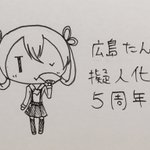 広島たん
擬人化
5周年